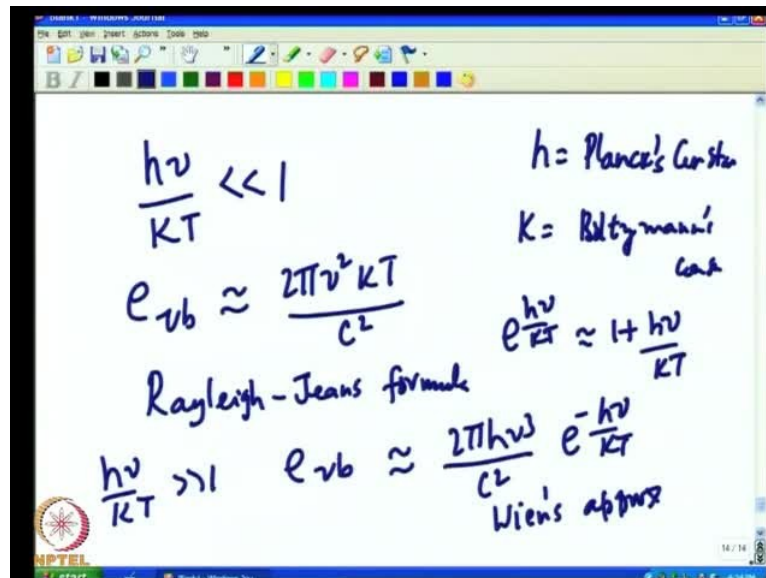 Blank1 - Windows Journal
File Edit View Insert Actions Tools Help
B I
hν/KT << 1
h = Planck's Constan
K = Boltzmann's
Cons
e_νb ≈ 2πν² KT/C²
e^(hν/KT) ≈ 1 + hν/KT
Rayleigh-Jeans formula
hν/KT >> 1 e_νb ≈ 2πhν³/C² e^(-hν/KT)
Wien's approx
NPTEL
14 / 14
start